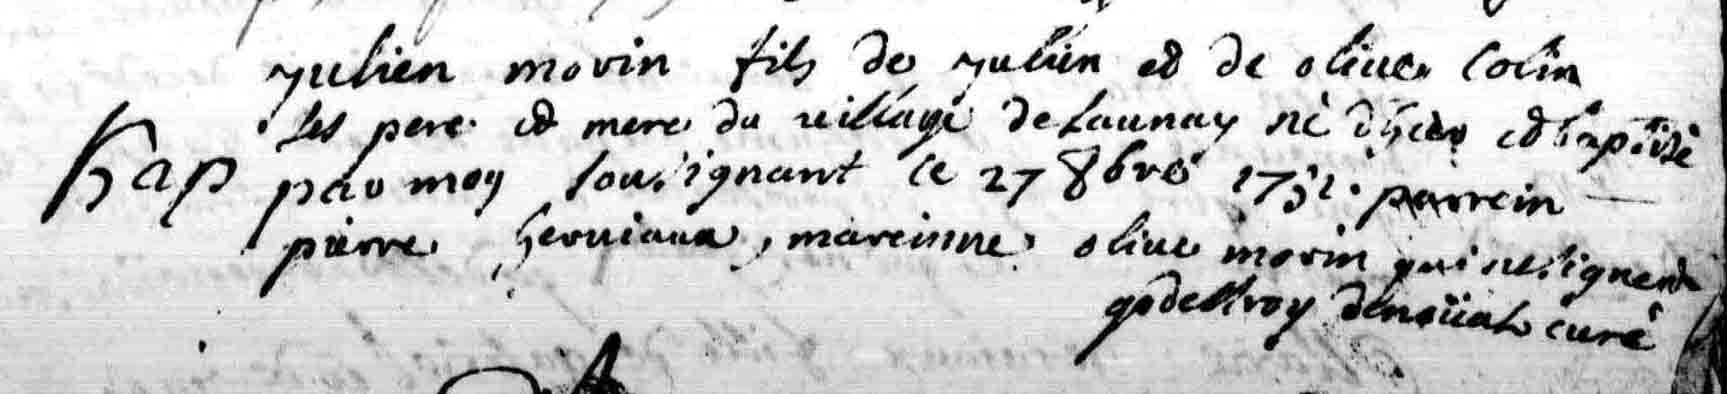 Julien morin fils de Julien et de oliue Colin
ses pere et mere du uillage de Launay né d'hier et baptisé
Bap par moy sousignant le 27 8bre 1751. parrein
pierre heruiaux, mareinne oliue morin qui ne signent
godeffroy denoüal curé